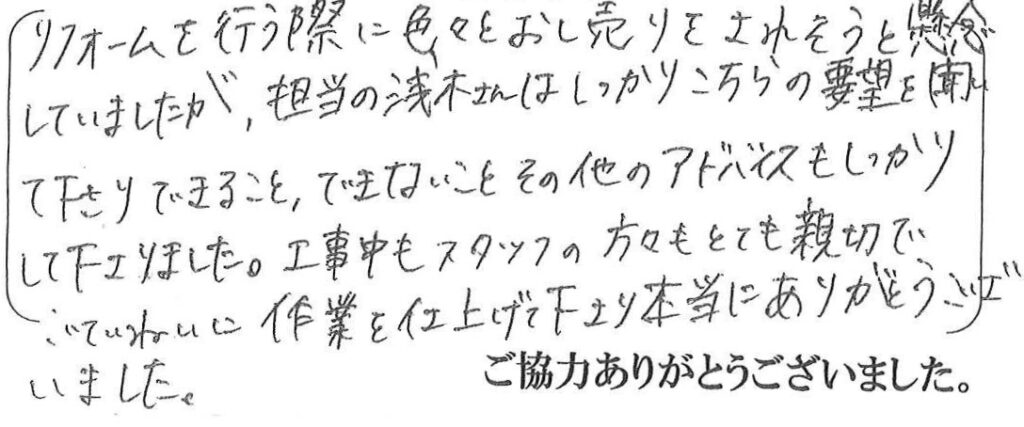 リフォームを行う際に色々とおし売りをされそうと懸念
していましたが、担当の浅木さんはしっかりこちらの要望を聞い
て下さりできること、できないことその他のアドバイスもしっかり
して下さりました。工事中もスタッフの方々もとても親切で
ていねいに作業を仕上げて下さり本当にありがとうござ
いました。
ご協力ありがとうございました。